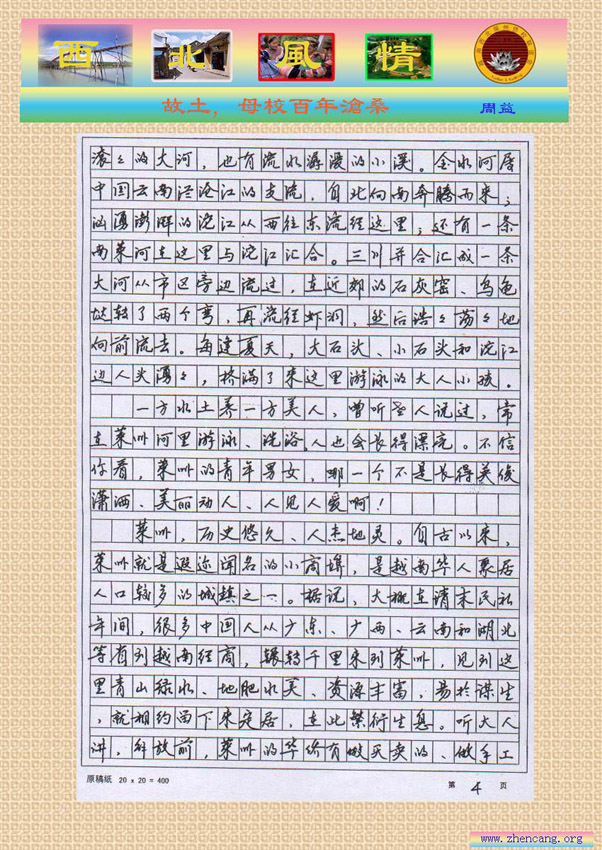 西北風情
故土，母校百年滄桑 周益
滚々的大河，也有流水潺潺的小溪。金水河居
中国云南泾沧江的支流，自北向南奔腾而来；
汹湧澎湃的沱江从西往东流径这里；还有一条
南莱河在这里与沱江汇合。三川并合汇成一条
大河从市区旁边流过，在近郊的石灰窑、乌龟
坟转了两个弯，再流径虾洞，然后浩々荡々地
向前流去。每逢夏天，大石头、小石头和沱江
边人头湧々，挤满了来这里游泳的大人小孩。
一方水土养一方美人，曾听圣人说过，常
在莱州河里游泳、洗浴，人也会长得漂亮。不信
你看，莱州的青年男女，哪一个不是长得英俊
潇洒、美丽动人、人见人爱啊！
莱州，历史悠久、人杰地灵。自古以来，
莱州就是遐迩闻名的小商埠，是越南华人聚居
人口较多的城镇之一。据说，大概在清末民初
年间，很多中国人从广东、广西、云南和湖北
等省到越南经商，辗转千里来到莱州，见到这
里青山绿水、地肥水美、资源丰富，易於谋生
，就相约留下来定居，在此繁衍生息。听大人
讲，解放前，莱州的华侨有做买卖的、做手工
原稿纸 20 x 20 = 400 第 4 页
www.zhencang.org